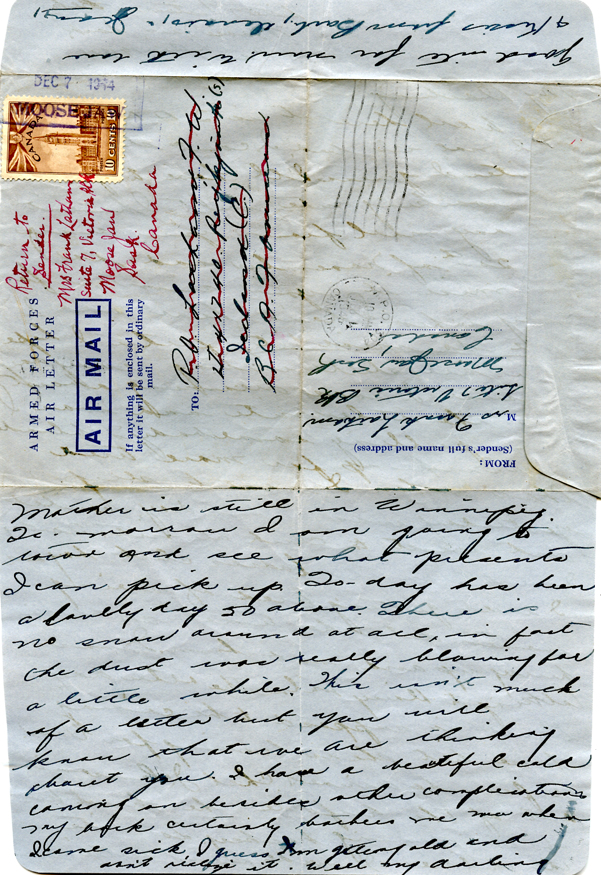 Mother is still in Winnipeg
To-morrow I am going to
town and see what presents
I can pick up. To-day has been
a lovely day 50 above. There is
no snow around at all, in fact
the dust was really blowing for
a little while. This isn't much
of a letter but you will
know that we are thinking
about you. I have a beautiful cold
coming on besides other complications
my back certainly bothers me now when
I come sick I guess I'm getting old and
don't realize it. Well my darling
good nite for now with love
& kisses from
DEC 7 1944
MOOSE JAW
CANADA
10 CENTS 10
Return to
Sender.
Mrs Frank Latham
Suite 7, Victoria Blk
Moose Jaw
Sask.
Canada
ARMED FORCES
AIR LETTER
AIR MAIL
If anything is enclosed in this
letter it will be sent by ordinary
mail.
TO:
FROM:
(Sender's full name and address)
Mrs Frank Latham
Suite 7 Victoria Blk
Moose Jaw Sask
Canada